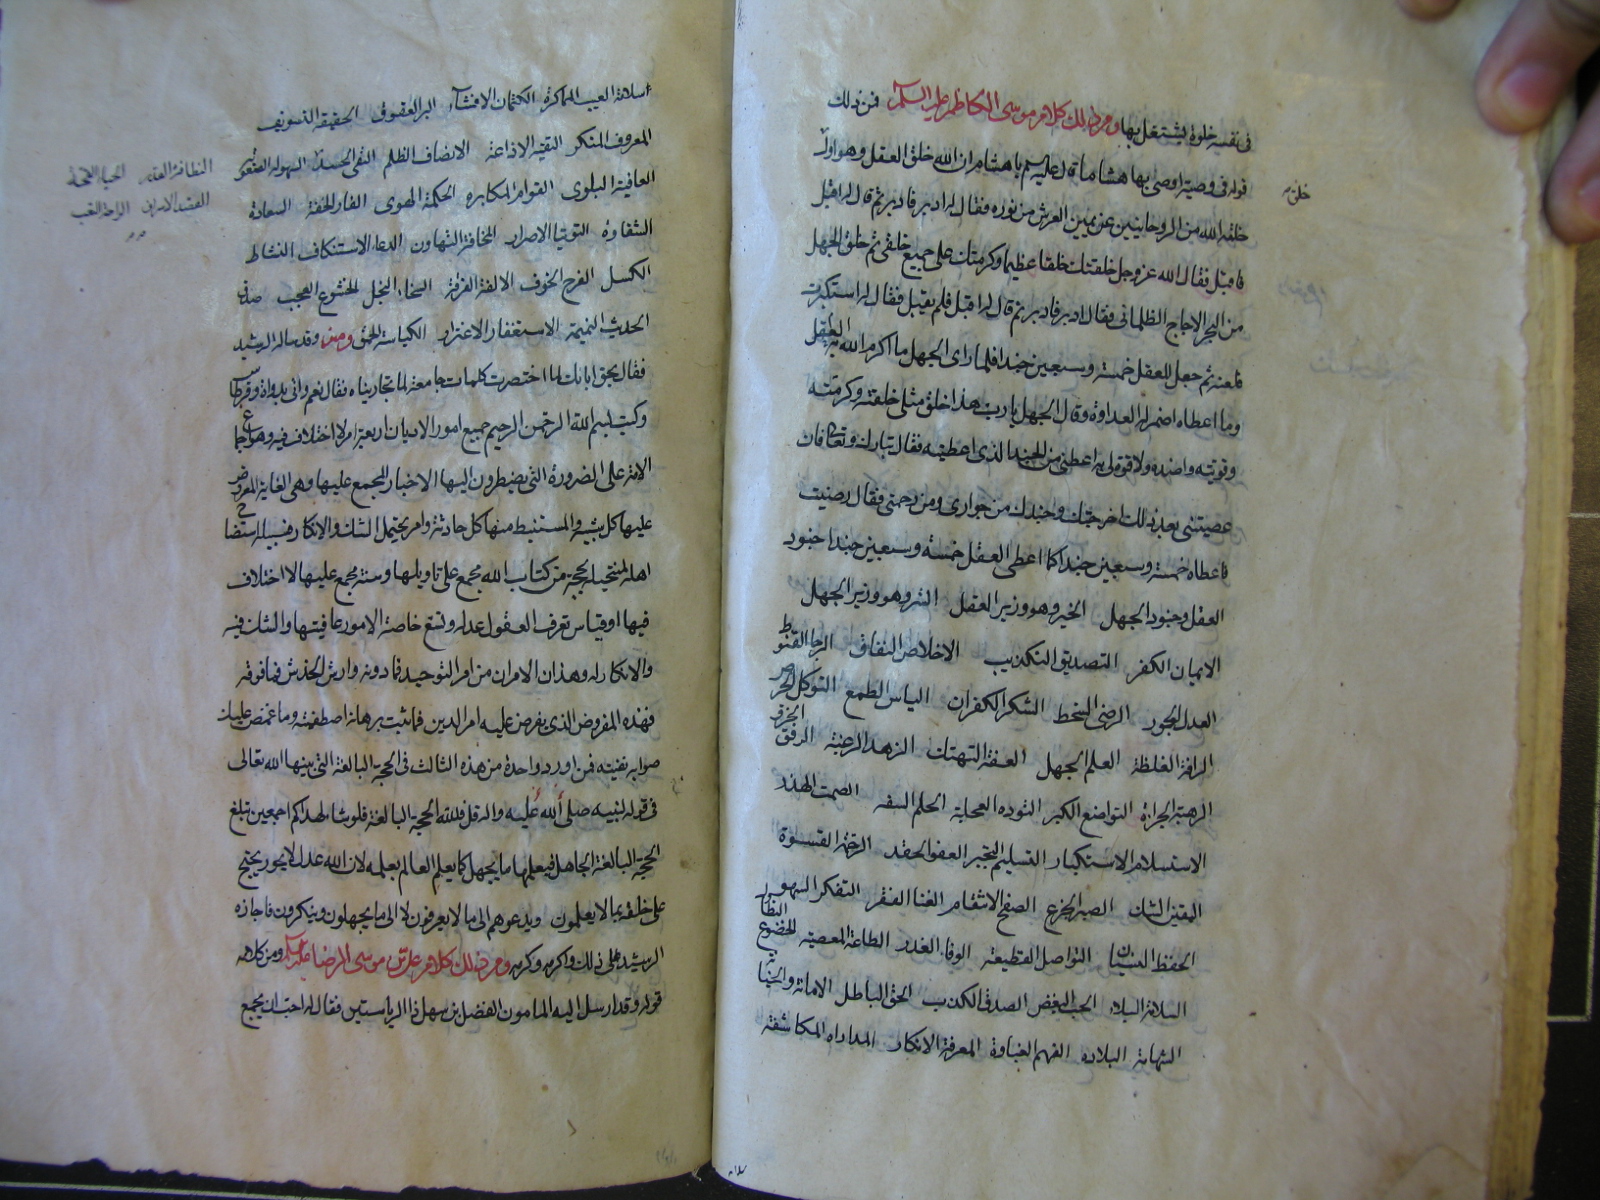 في نفسه خلوة يشتغل بها ومن ذلك كلام موسى الكاظم عليه السلام فمن ذلك
قوله في وصية اوصى بها هشاما قال عليه السلم يا هشام ان الله خلق العقل وهو اول
خلق
خلقه الله من الروحانيين عن يمين العرش من نوره فقال له ادبر فادبر ثم قال له اقبل
فاقبل فقال الله عز وجل خلقتك خلقا عظيما وكرمتك على جميع خلقي ثم خلق الجهل
من البحر الاجاج الظلماني فقال له ادبر فادبر ثم قال له اقبل فلم يقبل فقال له استكبرت
فلعنه ثم جعل للعقل خمسة وسبعين جندا فلما راى الجهل ما اكرم الله به العقل
وما اعطاه اضمر له العداوة وقال الجهل يا رب هذا خلق مثلي خلقته وكرمته
وقويته وانا ضده ولا قوة لي به اعطني من الجند الذي اعطيته فقال تبارك وتعالى فان
عصيتني بعد ذلك اخرجتك وجندك من جواري ومن رحمتي فقال رضيت
فاعطاه خمسة وسبعين جندا كما اعطى العقل خمسة وسبعين جندا جنود
العقل وجنود الجهل الخير وهو وزير العقل الشر وهو وزير الجهل
الايمان الكفر التصديق التكذيب الاخلاص النفاق الرجا القنوط
العدل الجور الرضى السخط الشكر الكفران الياس الطمع التوكل الحرص
الرافة الغلظة العلم الجهل العفة التهتك الزهد الرغبة الرفق الخرق
الرهبة الجراة التواضع الكبر التوده العجلة الحلم السفه الصمت الهذر
الاستسلام الاستكبار التسليم التجبر العفو الحقد الرحمة القسوة
اليقين الشك الصبر الجزع الصفح الانتقام الغنا الفقر التفكر السهو
الحفظ النسيان التواصل القطيعة الوفاء الغدر الطاعة المعصية الخضوع التطاول
السلامة البلاء الحب البغض الصدق الكذب الحق الباطل الامانة والخيانة
الشهامة البلاده الفهم الغباوة المعرفة الانكار المداراه المكاشفة
سلامة
سلامة الغيب المماكرة الكتمان الافشاء البر العقوق الحقيقة التسويف
المعروف المنكر التقية الاذاعة الانصاف الظلم النفي الحسد السهولة الصعوبة
النظافة القذر الحيا القحة
القصد الاسراف الراحة التعب
العافية البلوى القوام المكابره الحكمة الهوى الوقار الخفة السعادة
الشقاوة التوبة الاصرار المخافة التهاون الدعاء الاستنكاف النشاط
الكسل الفرح الحزن الالفة الفرقة السخاء البخل الخشوع العجب صدق
الحديث النميمة الاستغفار الاغترار الكياسة الحمق ومنه وقد ساله الرشيد
فقال بحق ابائك لما اختصرت كلمات جامعة لما تجاريناه فقال نعم واتى بدواة وقرطاس
وكتب بسم الله الرحمن الرحيم جميع امور الاديان اربعة امر لا اختلاف فيه وهو اجماع
الامة على الضرورة التي يضطرون اليها الاخبار المجمع عليها وهي الغاية المعروض
عليها كل شبهة والمستنبط منها كل حادثة وامر يحتمل الشك والانكار فسبيله استيضاح
اهله لمنتحيله لحجة من كتاب الله مجمع على تاويلها وسنة مجمع عليها لا اختلاف
فيها او قياس تعرف العقول عدله وتسع خاصة الامور عامتها والشك فيه
والانكار له وهذان الامران من امر التوحيد فما دونه وارش الخدش فما فوقه
فهذه المفروض الذي يفرض عليه امر الدين فما ثبت برهانه اصطفيته وما غمض عليك
صوابه نفيته فمن اورد واحدة من هذه الثلاث فهي الحجة البالغة التي بينها الله تعالى
في قوله لنبيه صلى الله عليه واله قل فلله الحجة البالغة فلو شاء لهداكم اجمعين تبلغ
الحجة البالغة الجاهل فيعلمها ما يجهل كما يعلم العالم بعلمه لان الله عدل لا يجور يحتج
على خلقه بما لا يعلمون ويدعوهم الى ما لا يعرفون لا الى ما يجهلون وينكرون فاجازه
الرشيد على ذلك واكرمه وكرمه ومن ذلك كلام علي بن موسى الرضا عليه السلم ومن كلامه
قوله وقد ارسل اليه المامون الفضل بن سهل ذا الرياستين فقال له احب ان يجمع